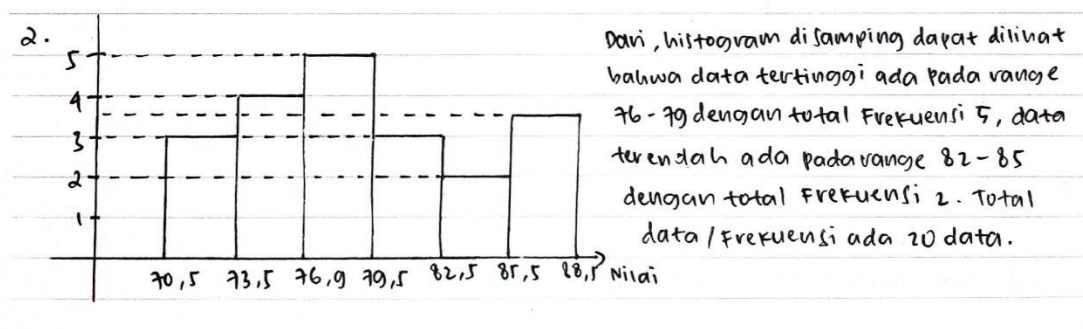 2.
5
4
3
2
1
70,5 73,5 76,9 79,5 82,5 85,5 88,5 Nilai
Dari, histogram disamping dapat dilihat
bahwa data tertinggi ada pada range
76-79 dengan total Frekuensi 5, data
terendah ada pada range 82-85
dengan total Frekuensi 2. Total
data/Frekuensi ada 20 data.